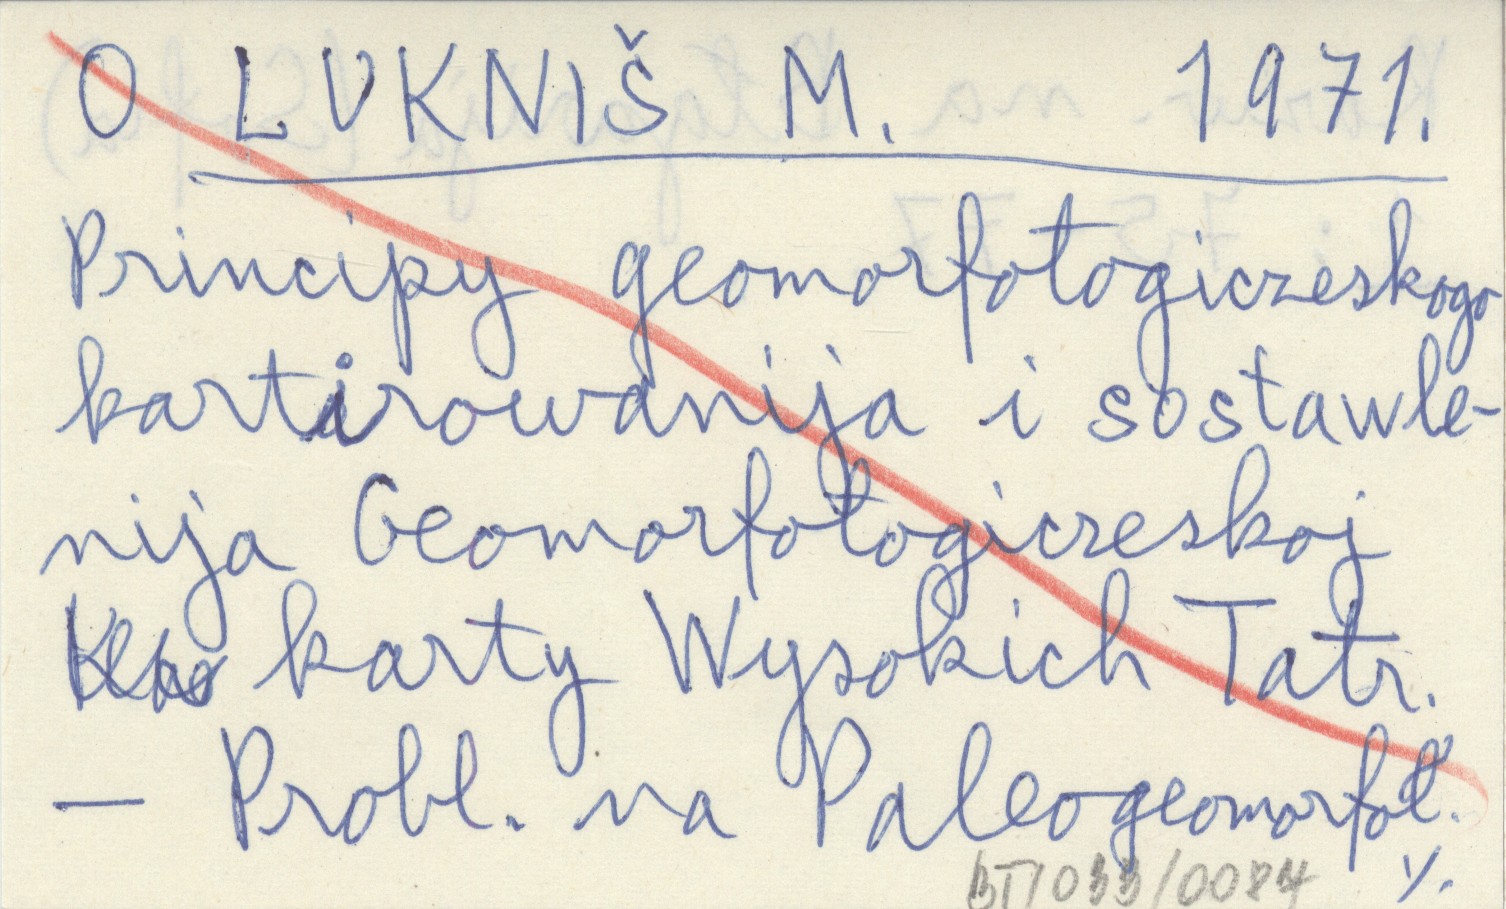 O LUKNIŠ M. 1971.
Principy geomorfołogiczeskogo
kartirowanija i sostawle-
nija Geomorfołogiczeskoj
karty Wysokich Tatr.
— Probl. na Paleogeomorfoł.
BT/033/0084 ./.